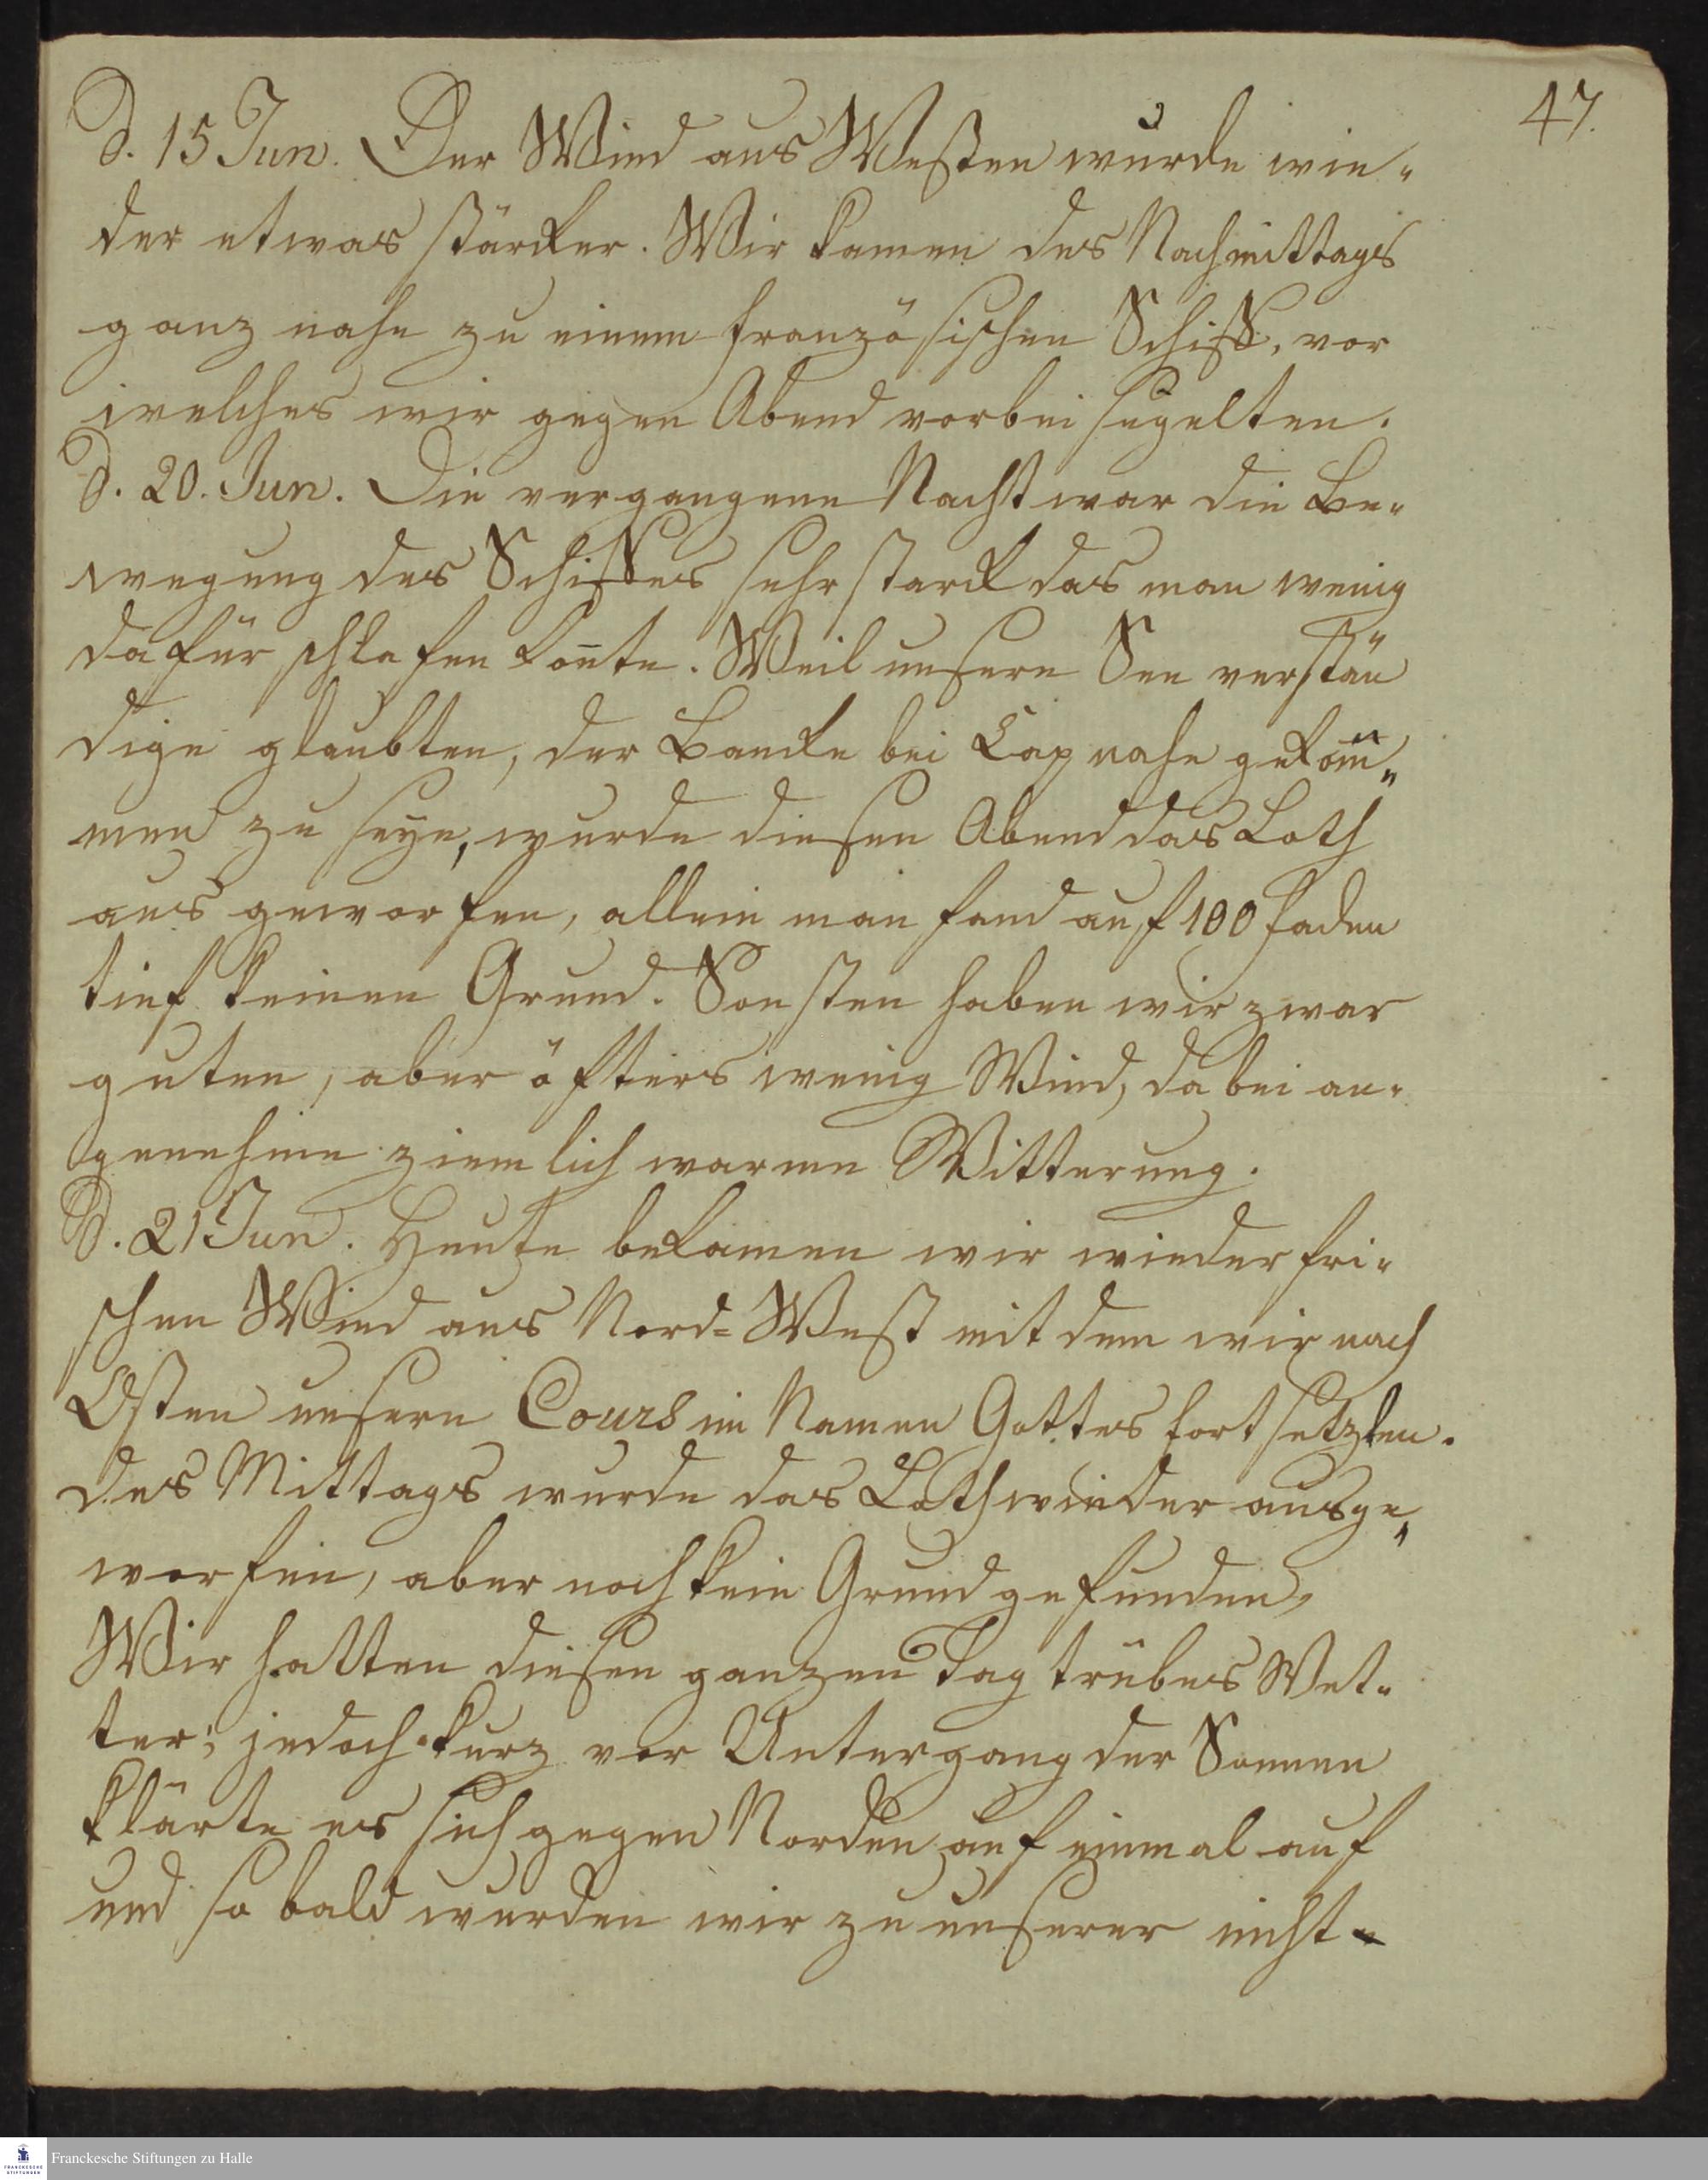 47.
D. 15 Jun. Der Wind aus Westen wurde wie-
der etwas stärcker. Wir kamen des Nachmittags
ganz nahe zu einem französischen Schiff, vor
welches wir gegen Abend vorbei segelten.
D. 20. Jun. Die vergangene Nacht war die Be-
wegung des Schiffes sehr starck das man wenig
dafür schlafen kon̅te. Weil unsere See verstän
dige glaubten, der Bancke bei Cap nahe gekom̅-
men zu seye, wurde diesen Abend das Loth
aus geworfen, allein man fand auf 100 Faden
tief keinen Grund. Sonsten haben wir zwar
guten, aber öfters wenig Wind, dabei an-
genehme ziemlich warme Witterung.
D. 21 Jun. Heute bekamen wir wieder fri-
schen Wind aus Nord-West mit dem wir nach
Osten unsern Cours im Namen Gottes fortsetzten.
des Mittags wurde das Loth wieder ausge-
worfen, aber noch kein Grund gefunden,
Wir hatten diesen ganzen Tag trübes Wet-
ter; jedoch kurz vor Untergang der Sonnen
klärte es sich gegen Norden auf einmal auf
und so bald wurden wir zu unserer nicht-
Franckesche Stiftungen zu Halle
FRANCKESCHE
STIFTUNGEN